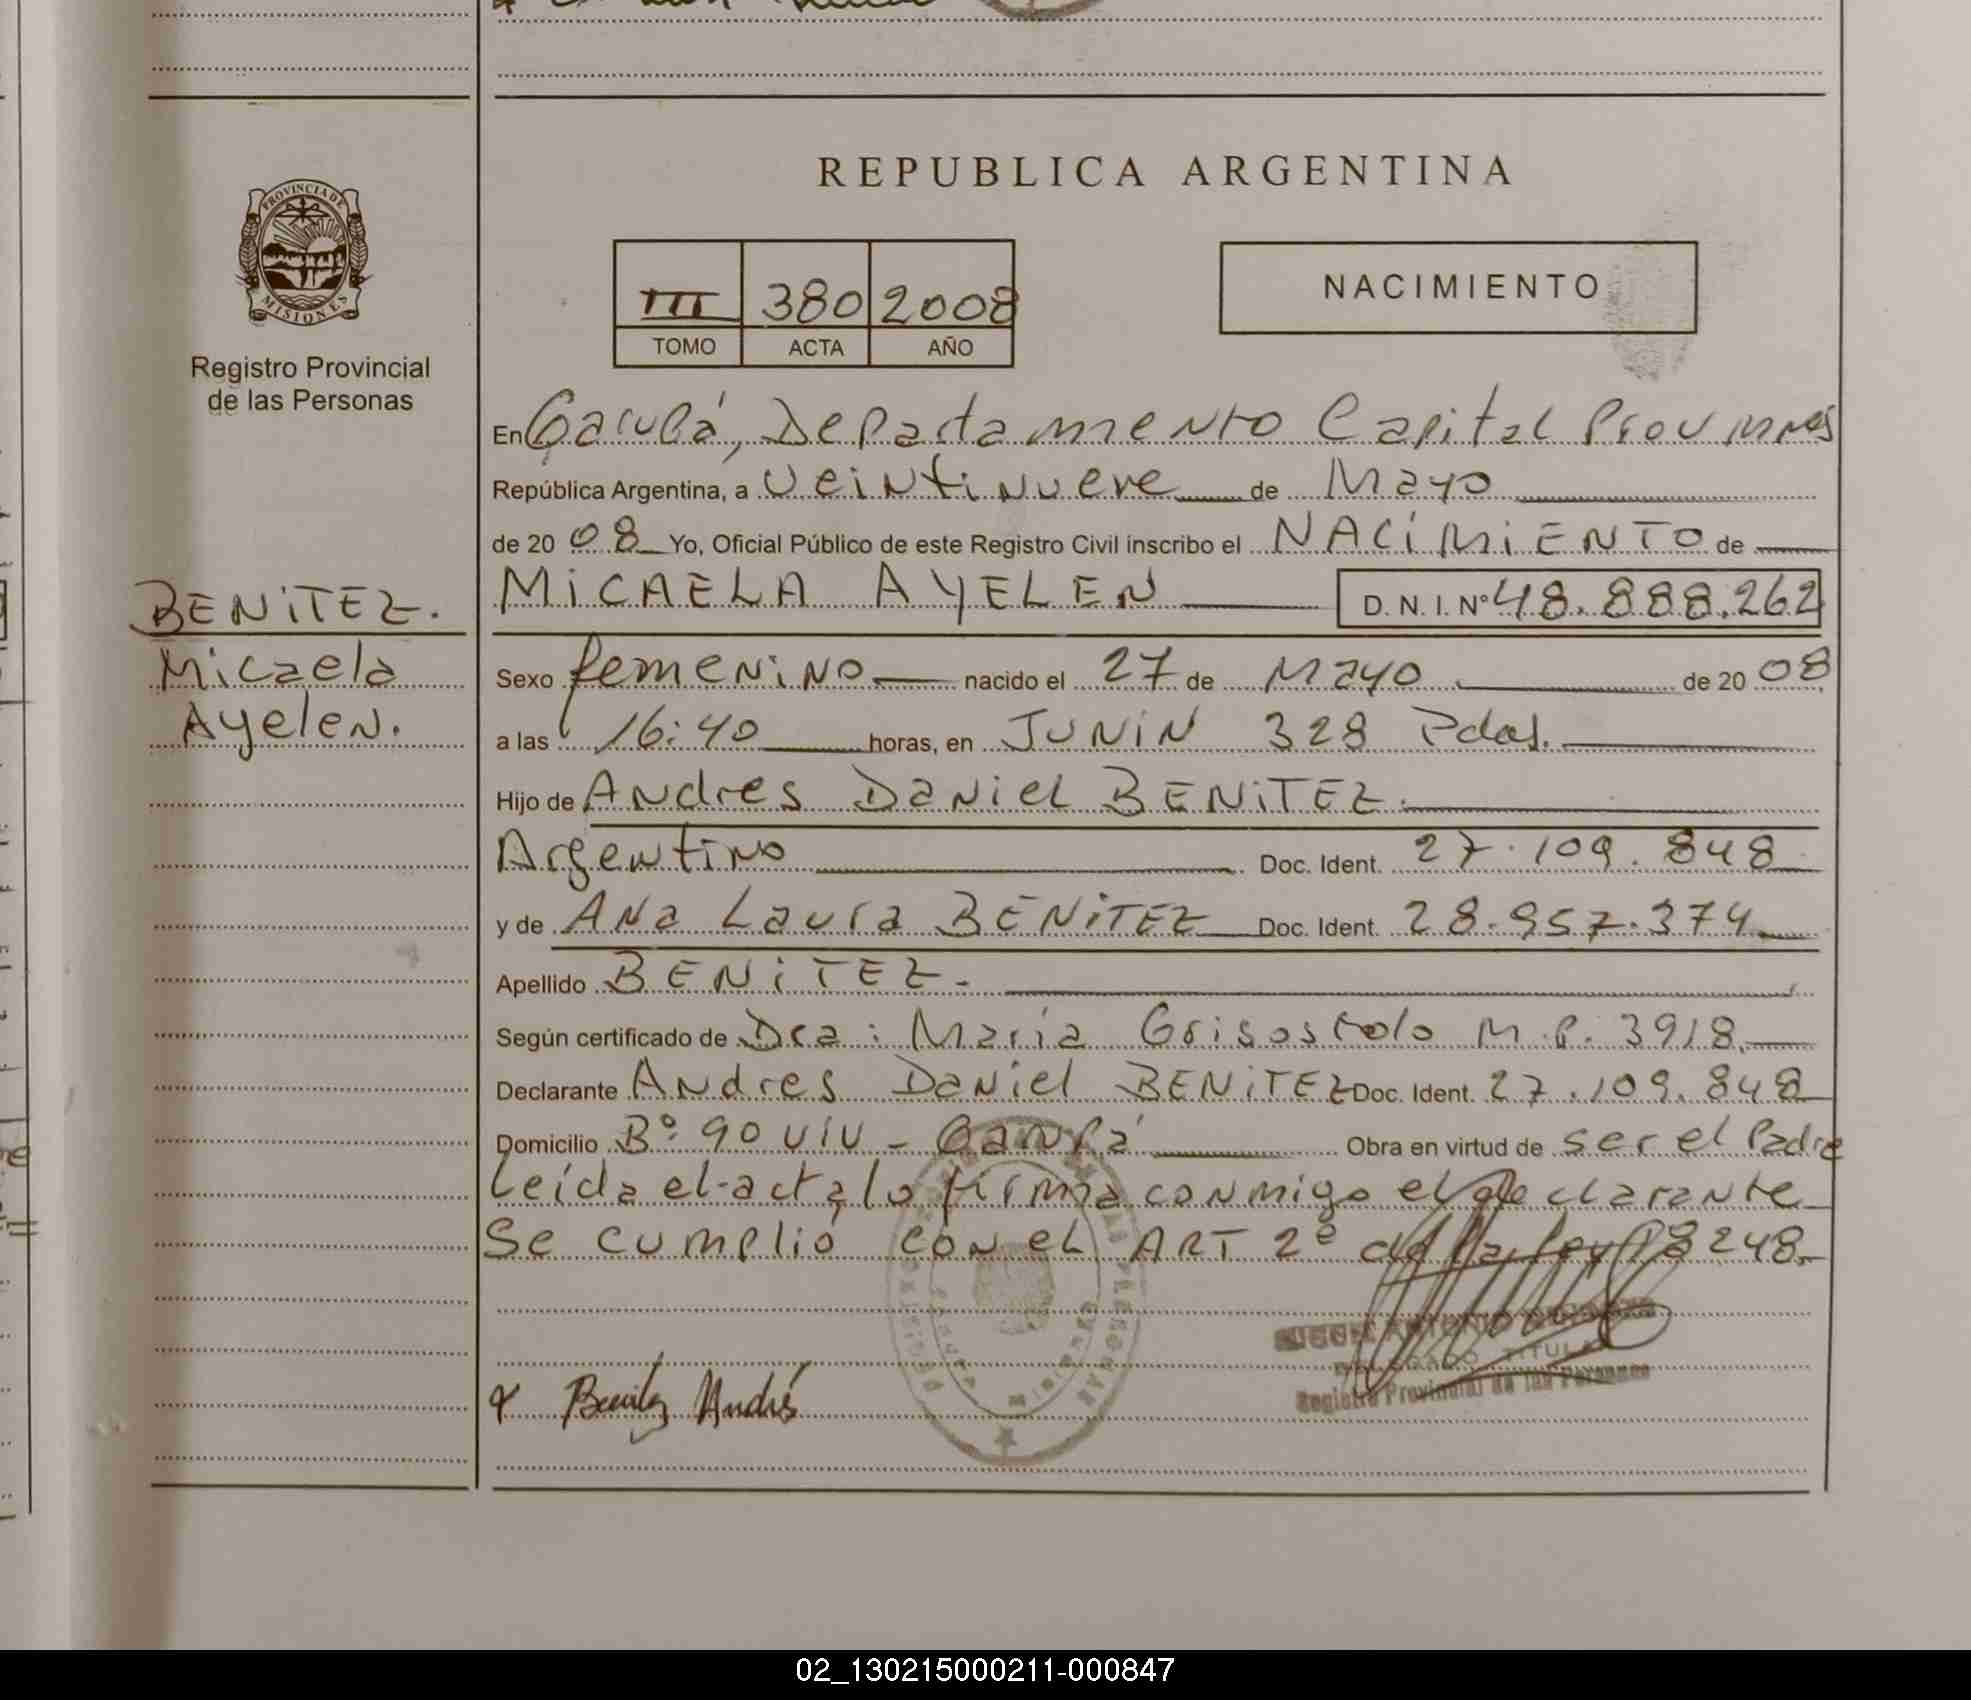 REPUBLICA ARGENTINA
PROVINCIA DE
MISIONES
Registro Provincial
de las Personas
III 380 2008
TOMO ACTA AÑO
NACIMIENTO
En Garupá, Departamento Capital Prov Mnes
República Argentina, a veintinueve de Mayo
de 20 08 Yo, Oficial Público de este Registro Civil inscribo el NACIMIENTO de
MICAELA AYELEN D. N. I. Nº 48.888.262
BENITEZ.
Micaela
Ayelen.
Sexo femenino nacido el 27 de Mayo de 20 08
a las 16:40 horas, en JUNIN 328 Pdas.
Hijo de Andres Daniel BENITEZ.
Argentino Doc. Ident. 27.109.848
y de Ana Laura BENITEZ Doc. Ident. 28.957.374
Apellido BENITEZ.
Según certificado de Dra: Maria M.P. 3918.
Declarante Andres Daniel BENITEZ Doc. Ident. 27.109.848
Domicilio Bº 90 viv - Garupá Obra en virtud de ser el Padre
Leída el acta, lo firma conmigo el declarante
Se cumplió con el ART 2º de la Ley 18248.
Benitez Andrés
TITULAR
Registro Provincial de las Personas
02_130215000211-000847